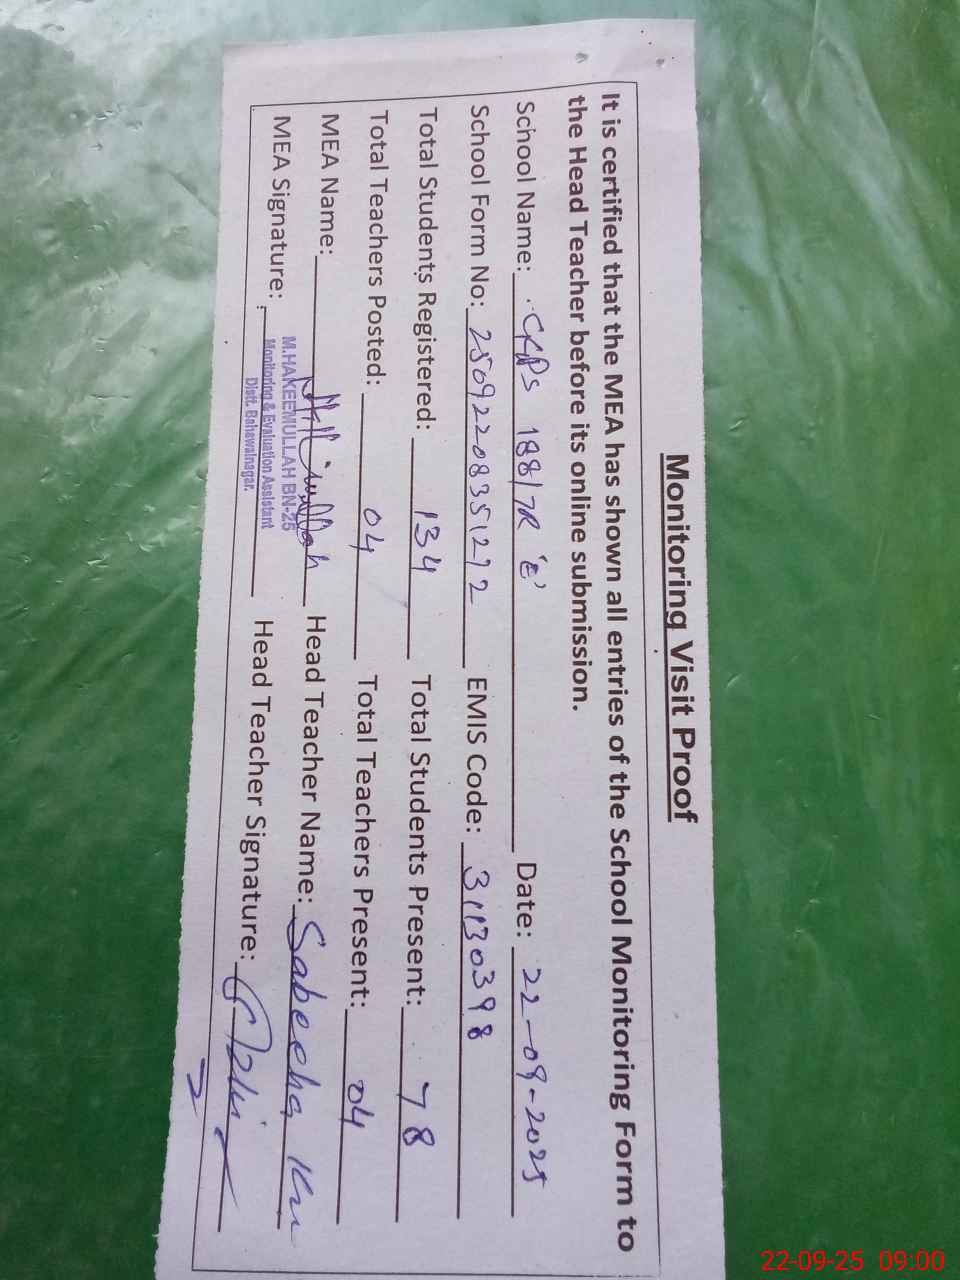 Monitoring Visit Proof
It is certified that the MEA has shown all entries of the School Monitoring Form to
the Head Teacher before its online submission.
School Name: GGPS 188/7R 'E' Date: 22-09-2025
School Form No: 25092208351272 EMIS Code: 31130398
Total Students Registered: 134 Total Students Present: 78
Total Teachers Posted: 04 Total Teachers Present: 04
MEA Name: Head Teacher Name: Sabeeha
M.HAKEEMULLAH BN-25
MEA Signature: Head Teacher Signature:
Monitoring & Evaluation Assistant
Distt. Bahawalnagar.
22-09-25 09:00